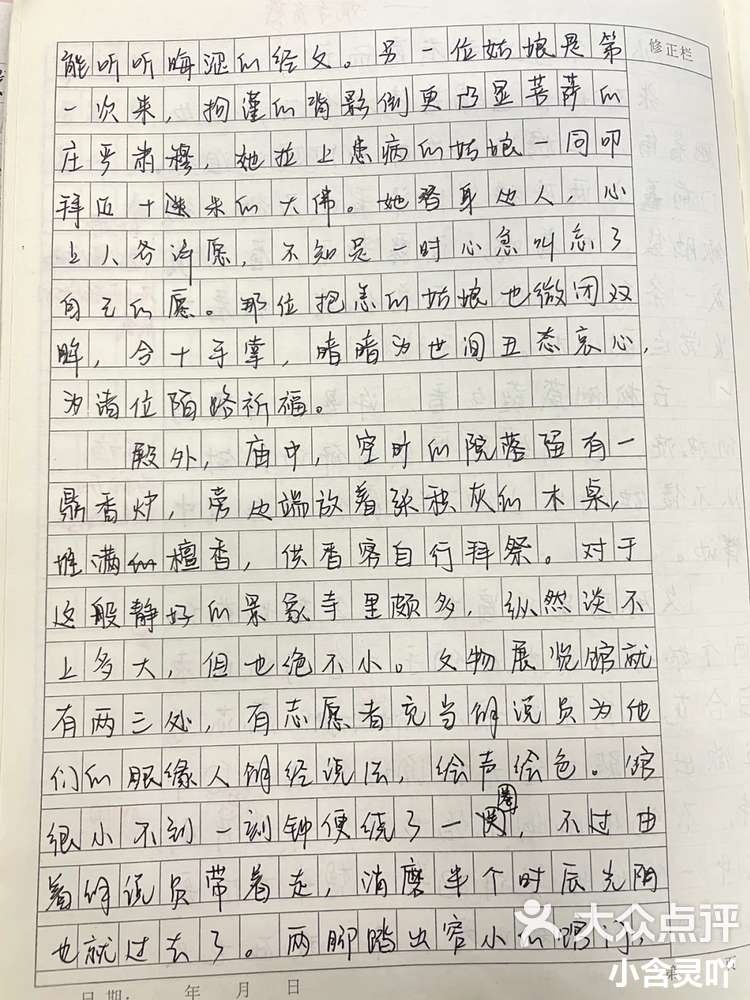 修正栏
能听听晦涩的经文。另一位姑娘是第
一次来，拘谨的背影倒更凸显菩萨的
庄严肃穆，她拉上患病的姑娘一同叩
拜近十米的大佛。她替身边人，心
上人各许愿，不知是一时心急叫忘了
自己的愿。那位抱恙的姑娘也微闭双
眸，合十手掌，暗暗为世间丑态哀心，
为诸位陌路祈福。
殿外，庙中，空旷的院落独有一
鼎香炉，旁边端放着张积灰的木桌，
堆满的檀香，供香客自行拜祭。对于
这般静好的景象寺里颇多，纵然谈不
上多大，但也绝不小。文物展览馆就
有两三处，有志愿者充当解说员为他
们的眼缘人解经说法，绘声绘色。馆
很小不到一刻钟便绕了一圈，不过由
着解说员带着走，消磨半个时辰光阴
也就过去了。两脚踏出窄小的
日期： 年 月 日
大众点评
小含灵吖